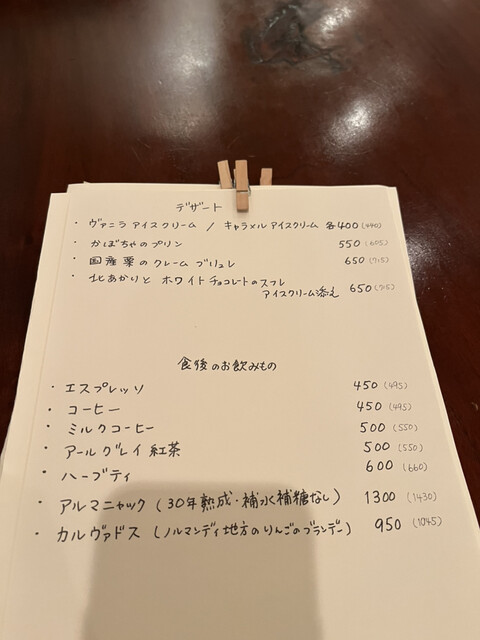 デザート
・ヴァニラアイスクリーム / キャラメルアイスクリーム 各400(440)
・かぼちゃのプリン 550(605)
・国産栗のクレームブリュレ 650(715)
・北あかりと ホワイトチョコレートのスフレ
アイスクリーム添え 650(715)
食後のお飲みもの
・エスプレッソ 450(495)
・コーヒー 450(495)
・ミルクコーヒー 500(550)
・アールグレイ紅茶 500(550)
・ハーブティ 600(660)
・アルマニャック(30年熟成・補水補糖なし) 1300(1430)
・カルヴァドス(ノルマンディ地方のりんごのブランデー) 950(1045)